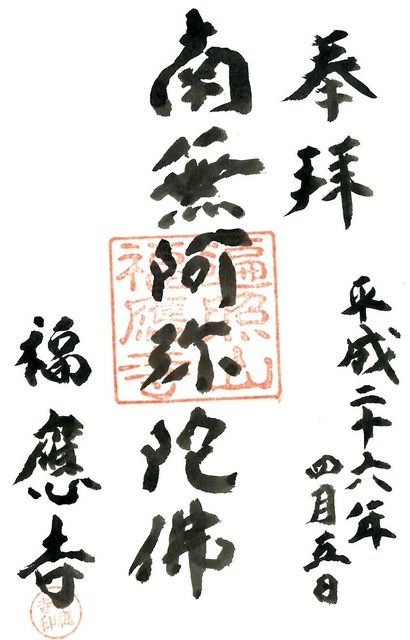 奉拜
平成二十六年
四月五日
南無阿弥陀佛
遍照山
福應寺
福應寺